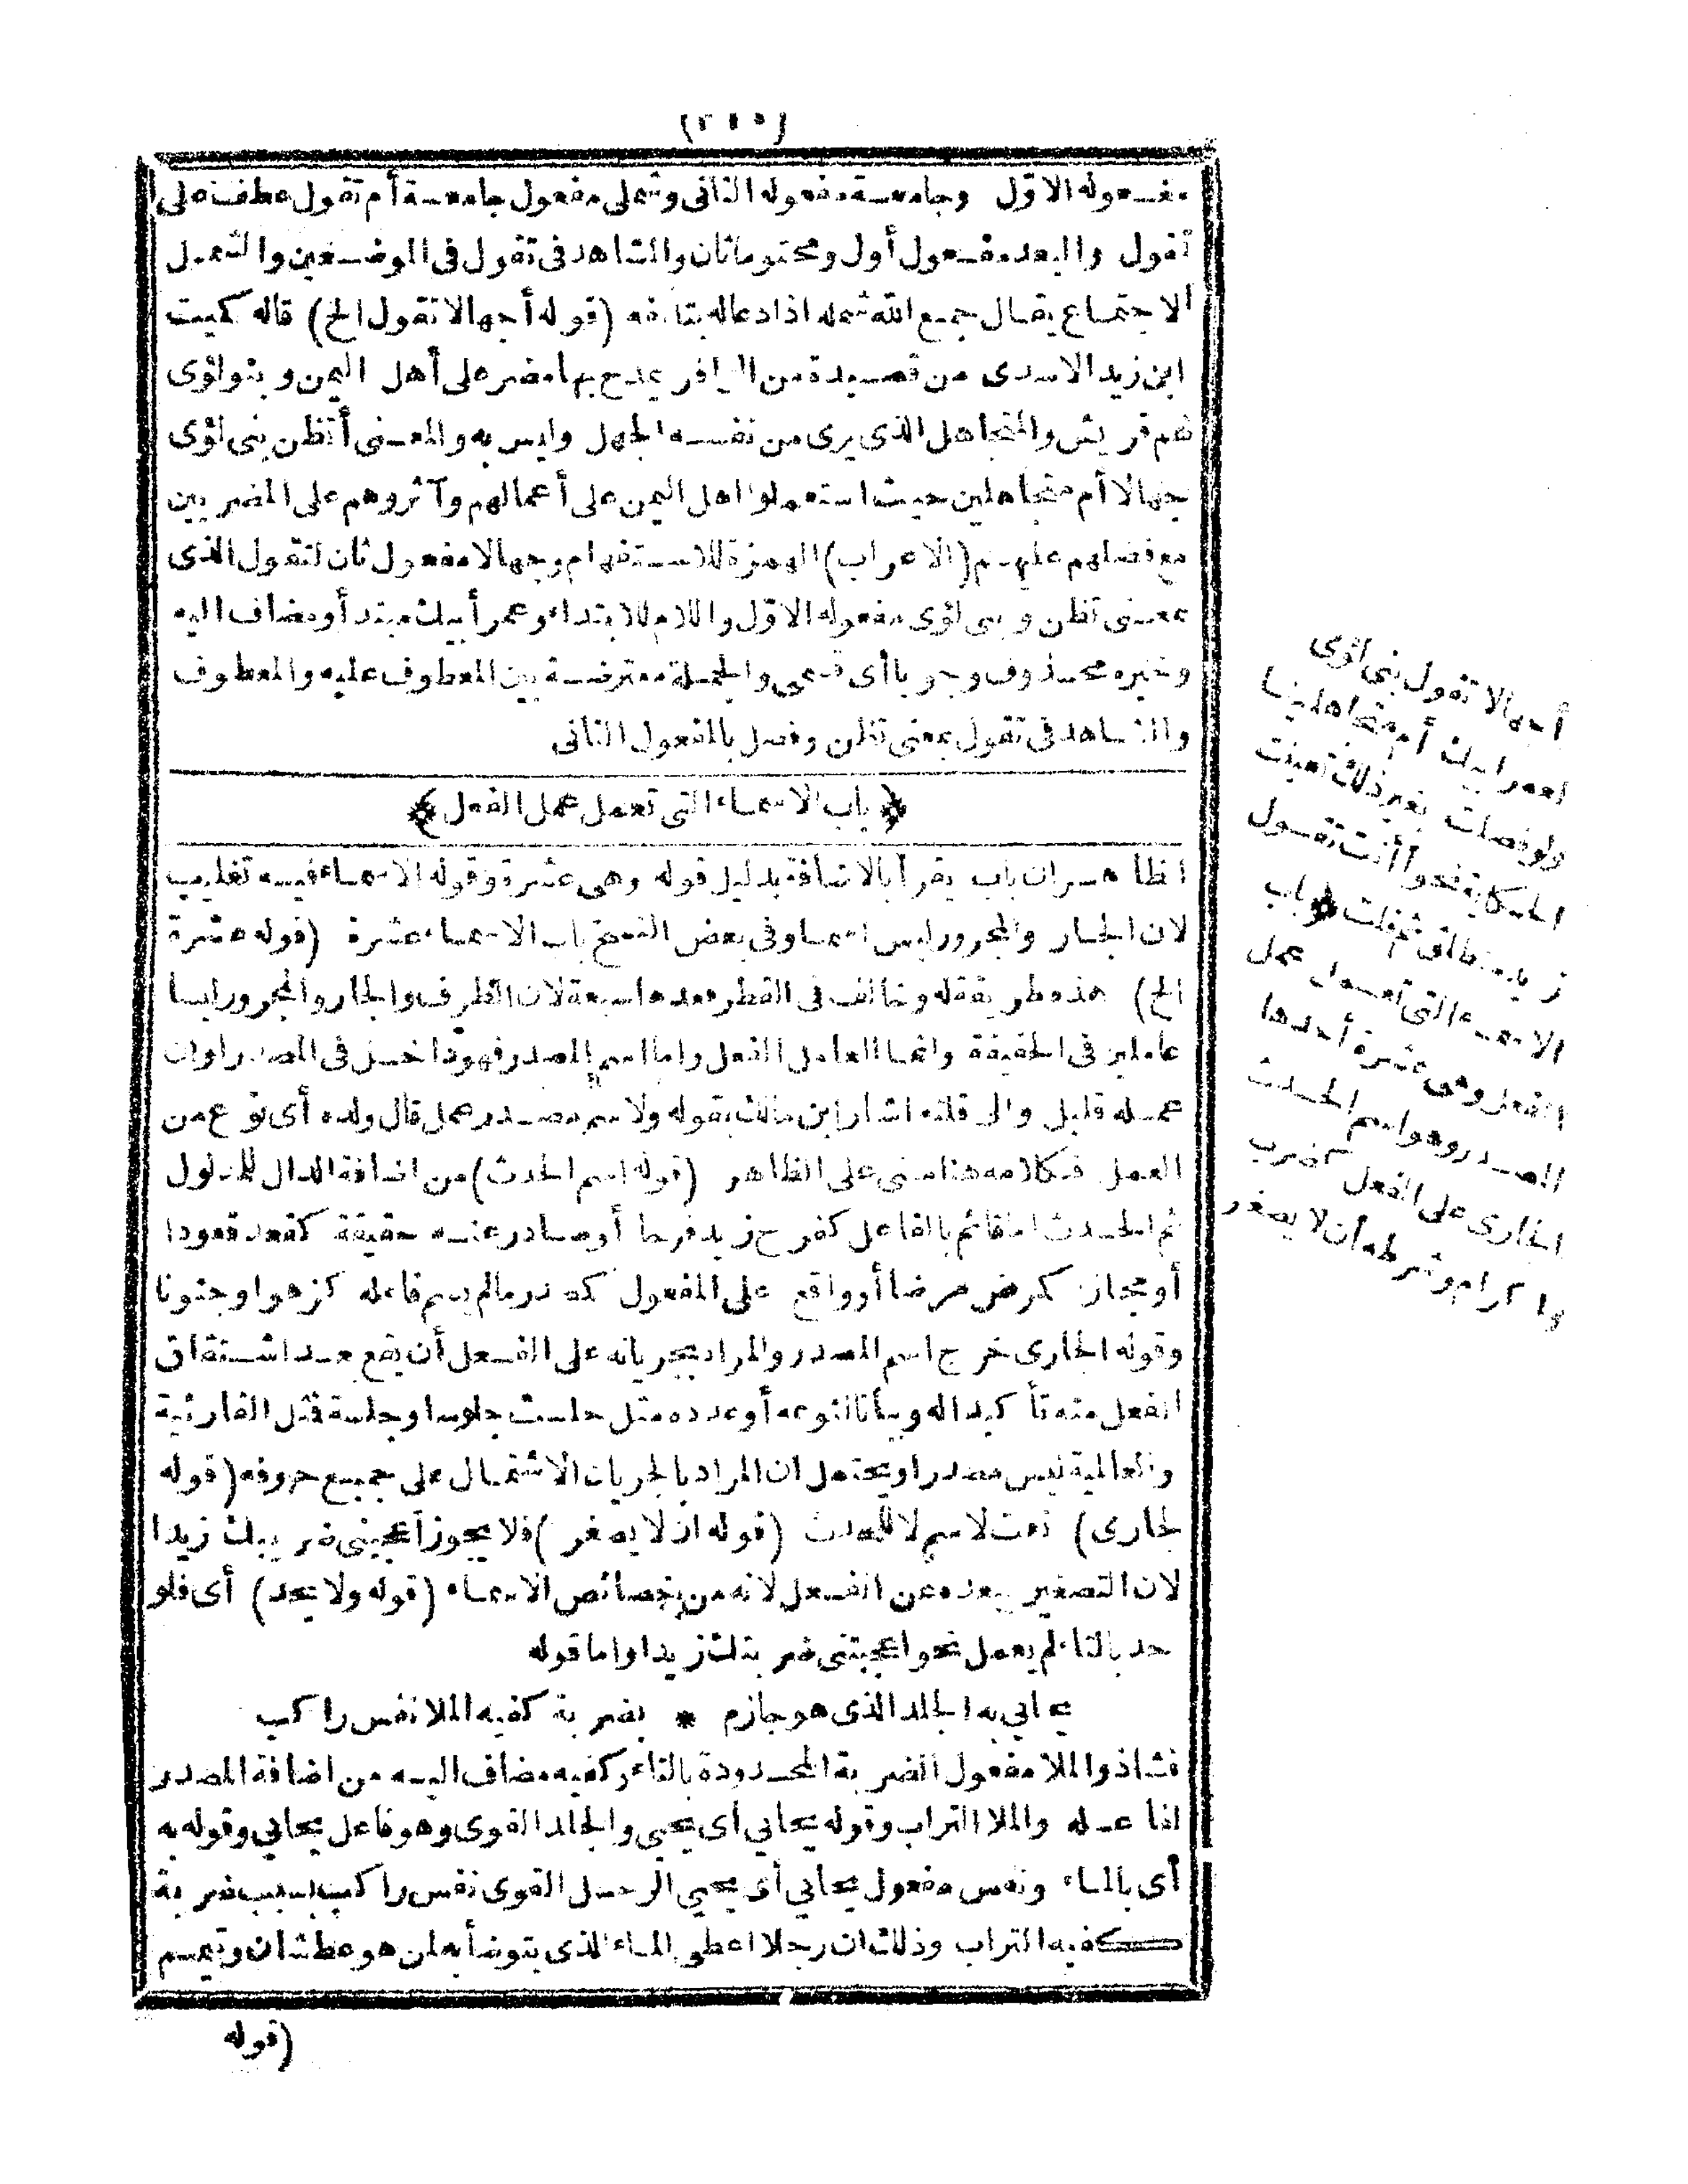 مفعوله الاول وجامعة مفعوله الثانى وشملى مفعول جامعة أم تقول عطف على
تقول والبعد مفعول أول ومحتوما ثان والشاهد فى تقول فى الموضعين والشمل
الاجتماع يقال جمع الله شمله اذا دعاله بتألفه (قوله أجهالا تقول الخ) قاله كميت
ابن زيد الاسدى من قصيدة من الوافر يمدح بها مضر على أهل اليمن وبنو لؤى
هم قريش والمتجاهل الذى يرى من نفسه الجهل وليس به والمعنى أتظن بنى لؤى
جهالا أم متجاهلين حيث استعملوا اهل اليمن على أعمالهم وآثروهم على المضريين
مع فضلهم عليهم (الاعراب) الهمزة للاستفهام وجهالا مفعول ثان لتقول الذى
بمعنى تظن وبنى لؤى مفعوله الاول واللام للابتداء وعمر أبيك مبتدأ ومضاف اليه
وخبره محذوف وجوبا أى قسمى والجملة معترضة بين المعطوف عليه والمعطوف
والشاهد فى تقول بمعنى تظن وفصل بالمفعول الثانى
﴿باب الاسماء التى تعمل عمل الفعل﴾
الظاهر ان باب يقرأ بالاضافة بدليل قوله وهى عشرة وقوله الاسماء فيه تغليب
لان الجار والمجرور ليس اسما وفى بعض النسخ باب الاسماء عشرة (قوله عشرة
الخ) هذه طريقة له وخالف فى القطر فعدها سبعة لان الظرف والجار والمجرور ليسا
عاملين فى الحقيقة وانما العامل الفعل واما اسم المصدر فهو داخل فى المصدر وان
عمله قليل والى قلته اشار ابن مالك بقوله ولاسم مصدر عمل قال ولده أى نوع من
العمل فكلامه هنا مبنى على الظاهر (قوله اسم الحدث) من اضافة الدال للمدلول
ثم الحدث اما قائم بالفاعل كفرح زيد فرحا أو صادر عنه حقيقة كقعد قعودا
أو مجازا كمرض مرضا أو واقع على المفعول كمصدر مالم يسم فاعله كزهوا وجنونا
وقوله الجارى خرج اسم المصدر والمراد بجريانه على الفعل أن يقع بعد اشتقاق
الفعل منه تأكيدا له وبيانا لنوعه أو عدده مثل جلست جلوسا وجلسة فمثل القارئية
والعالمية ليس مصدرا ويحتمل ان المراد بالجريان الاشتمال على جميع حروفه (قوله
لجارى) نعت لاسم لا للحدث (قوله ان لا يصغر) فلا يجوز أعجبنى ضريبك زيدا
لان التصغير يبعده عن الفعل لانه من خصائص الاسماء (قوله ولا يحد) أى فلو
حد بالتاء لم يعمل نحو اعجبتنى ضربتك زيدا واما قوله
يحابى به الجلد الذى هو حازم * بضربة كفيه الملا نفس راكب
فشاذ والملا مفعول الضربة المحدودة بالتاء وكفيه مضاف اليه من اضافة المصدر
لفاعله والملا التراب وقوله يحابى أى يحيى والجلد القوى وهو فاعل يحابى وقوله به
أى بالماء ونفس مفعول يحابى أى يحيى الرجل القوى نفس راكب بسبب ضربة
كفيه التراب وذلك ان رجلا اعطى الماء الذى يتوضأ به لمن هو عطشان وتيمم
(قوله
أجهالا تقول بنى لؤى
لعمر ابيك أم متجاهلينا
ولو فصلت بغير ذلك تعينت
الحكاية نحو أأنت تقول
زيد منطلق ثم قلت باب
الاسماء التى تعمل عمل
الفعل وهى عشرة أحدها
المصدر وهو اسم الحدث
الجارى على الفعل كضرب
واكرام وشرطه أن لا يصغر